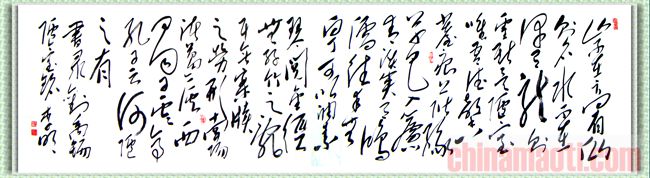 山不在高有仙
则名水不在
深有龙则
灵斯是陋室
唯吾德馨
苔痕上阶绿
草色入帘
青谈笑有鸿
儒往来无白
丁可以调素
琴阅金经
无丝竹之乱
耳无案牍
之劳形南阳
诸葛庐西
蜀子云亭
孔子云何陋
之有
书录刘禹锡
陋室铭
chinamaoti.com